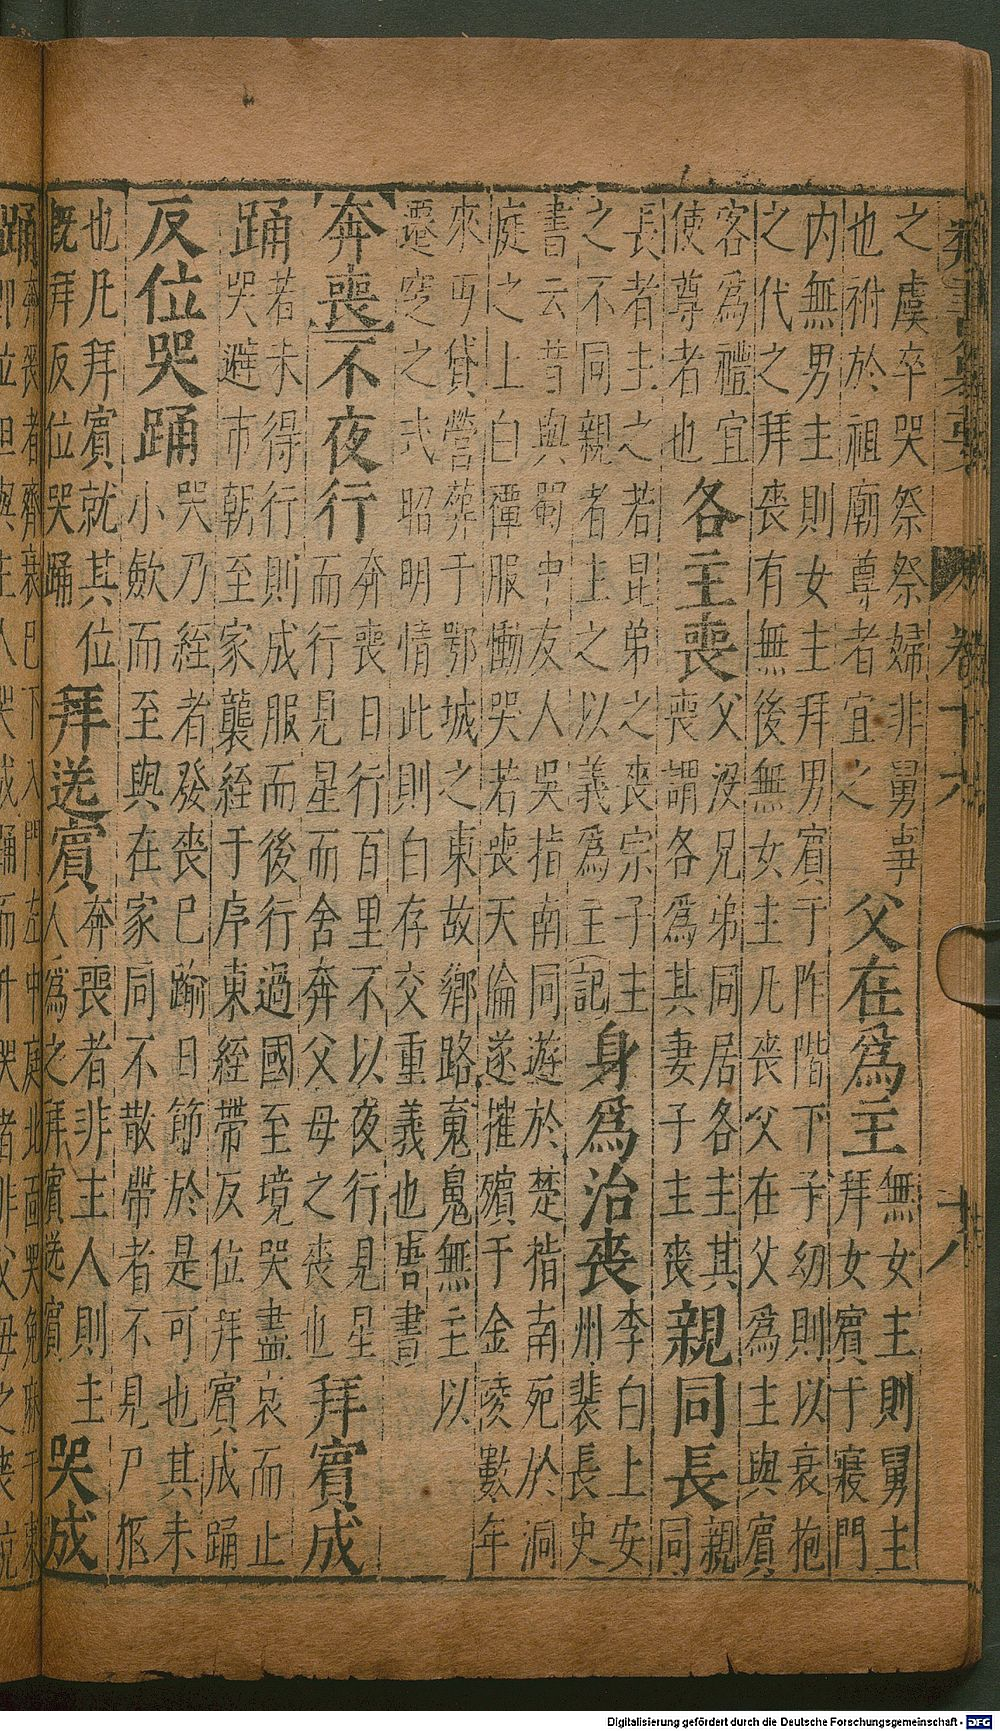 卷十六
之虞卒哭祭祭婦非舅事
也祔於祖廟尊者宜之
父在爲主
無女主則舅主
拜女賓于寢門
内無男主則女主拜男賓于阼階下子幼則以衰抱
之代之拜喪有無後無女主凡喪父在父爲主與賓
客爲禮宜
使尊者也
各主喪
父没兄弟同居各主其
喪謂各爲其妻子主喪
親同長
親
同
長者主之若昆弟之喪宗子主
之不同親者主之以義爲主記
身爲治喪
李白上安
州裴長史
書云昔與蜀中友人吳指南同遊於楚指南死於洞
庭之上白禫服慟哭若喪天倫遂摧殯于金陵數年
來再貸營葬于鄂城之東故鄉路䰟鬼無主以
遷窆之式昭明情此則白存交重義也唐書
奔喪
不夜行
奔喪日行百里不以夜行見星
而行見星而舍奔父母之喪也
拜賓成
踊
若未得行則成服而後行過國至境哭盡哀而止
哭避市朝至家襲絰于序東絰帶反位拜賓成踊
反位哭踊
哭乃絰者發喪已踰日節於是可也其未
小斂而至與在家同不散帶者不見尸柩
也凡拜賓就其位
既拜反位哭踊
拜送賓
奔喪者非主人則主
人爲之拜賓送賓
哭成
踊
奔喪者齊衰已下入門左中庭北面哭免麻于東
即位袒與主人哭成踊
Digitalisierung gefördert durch die Deutsche Forschungsgemeinschaft - DFG